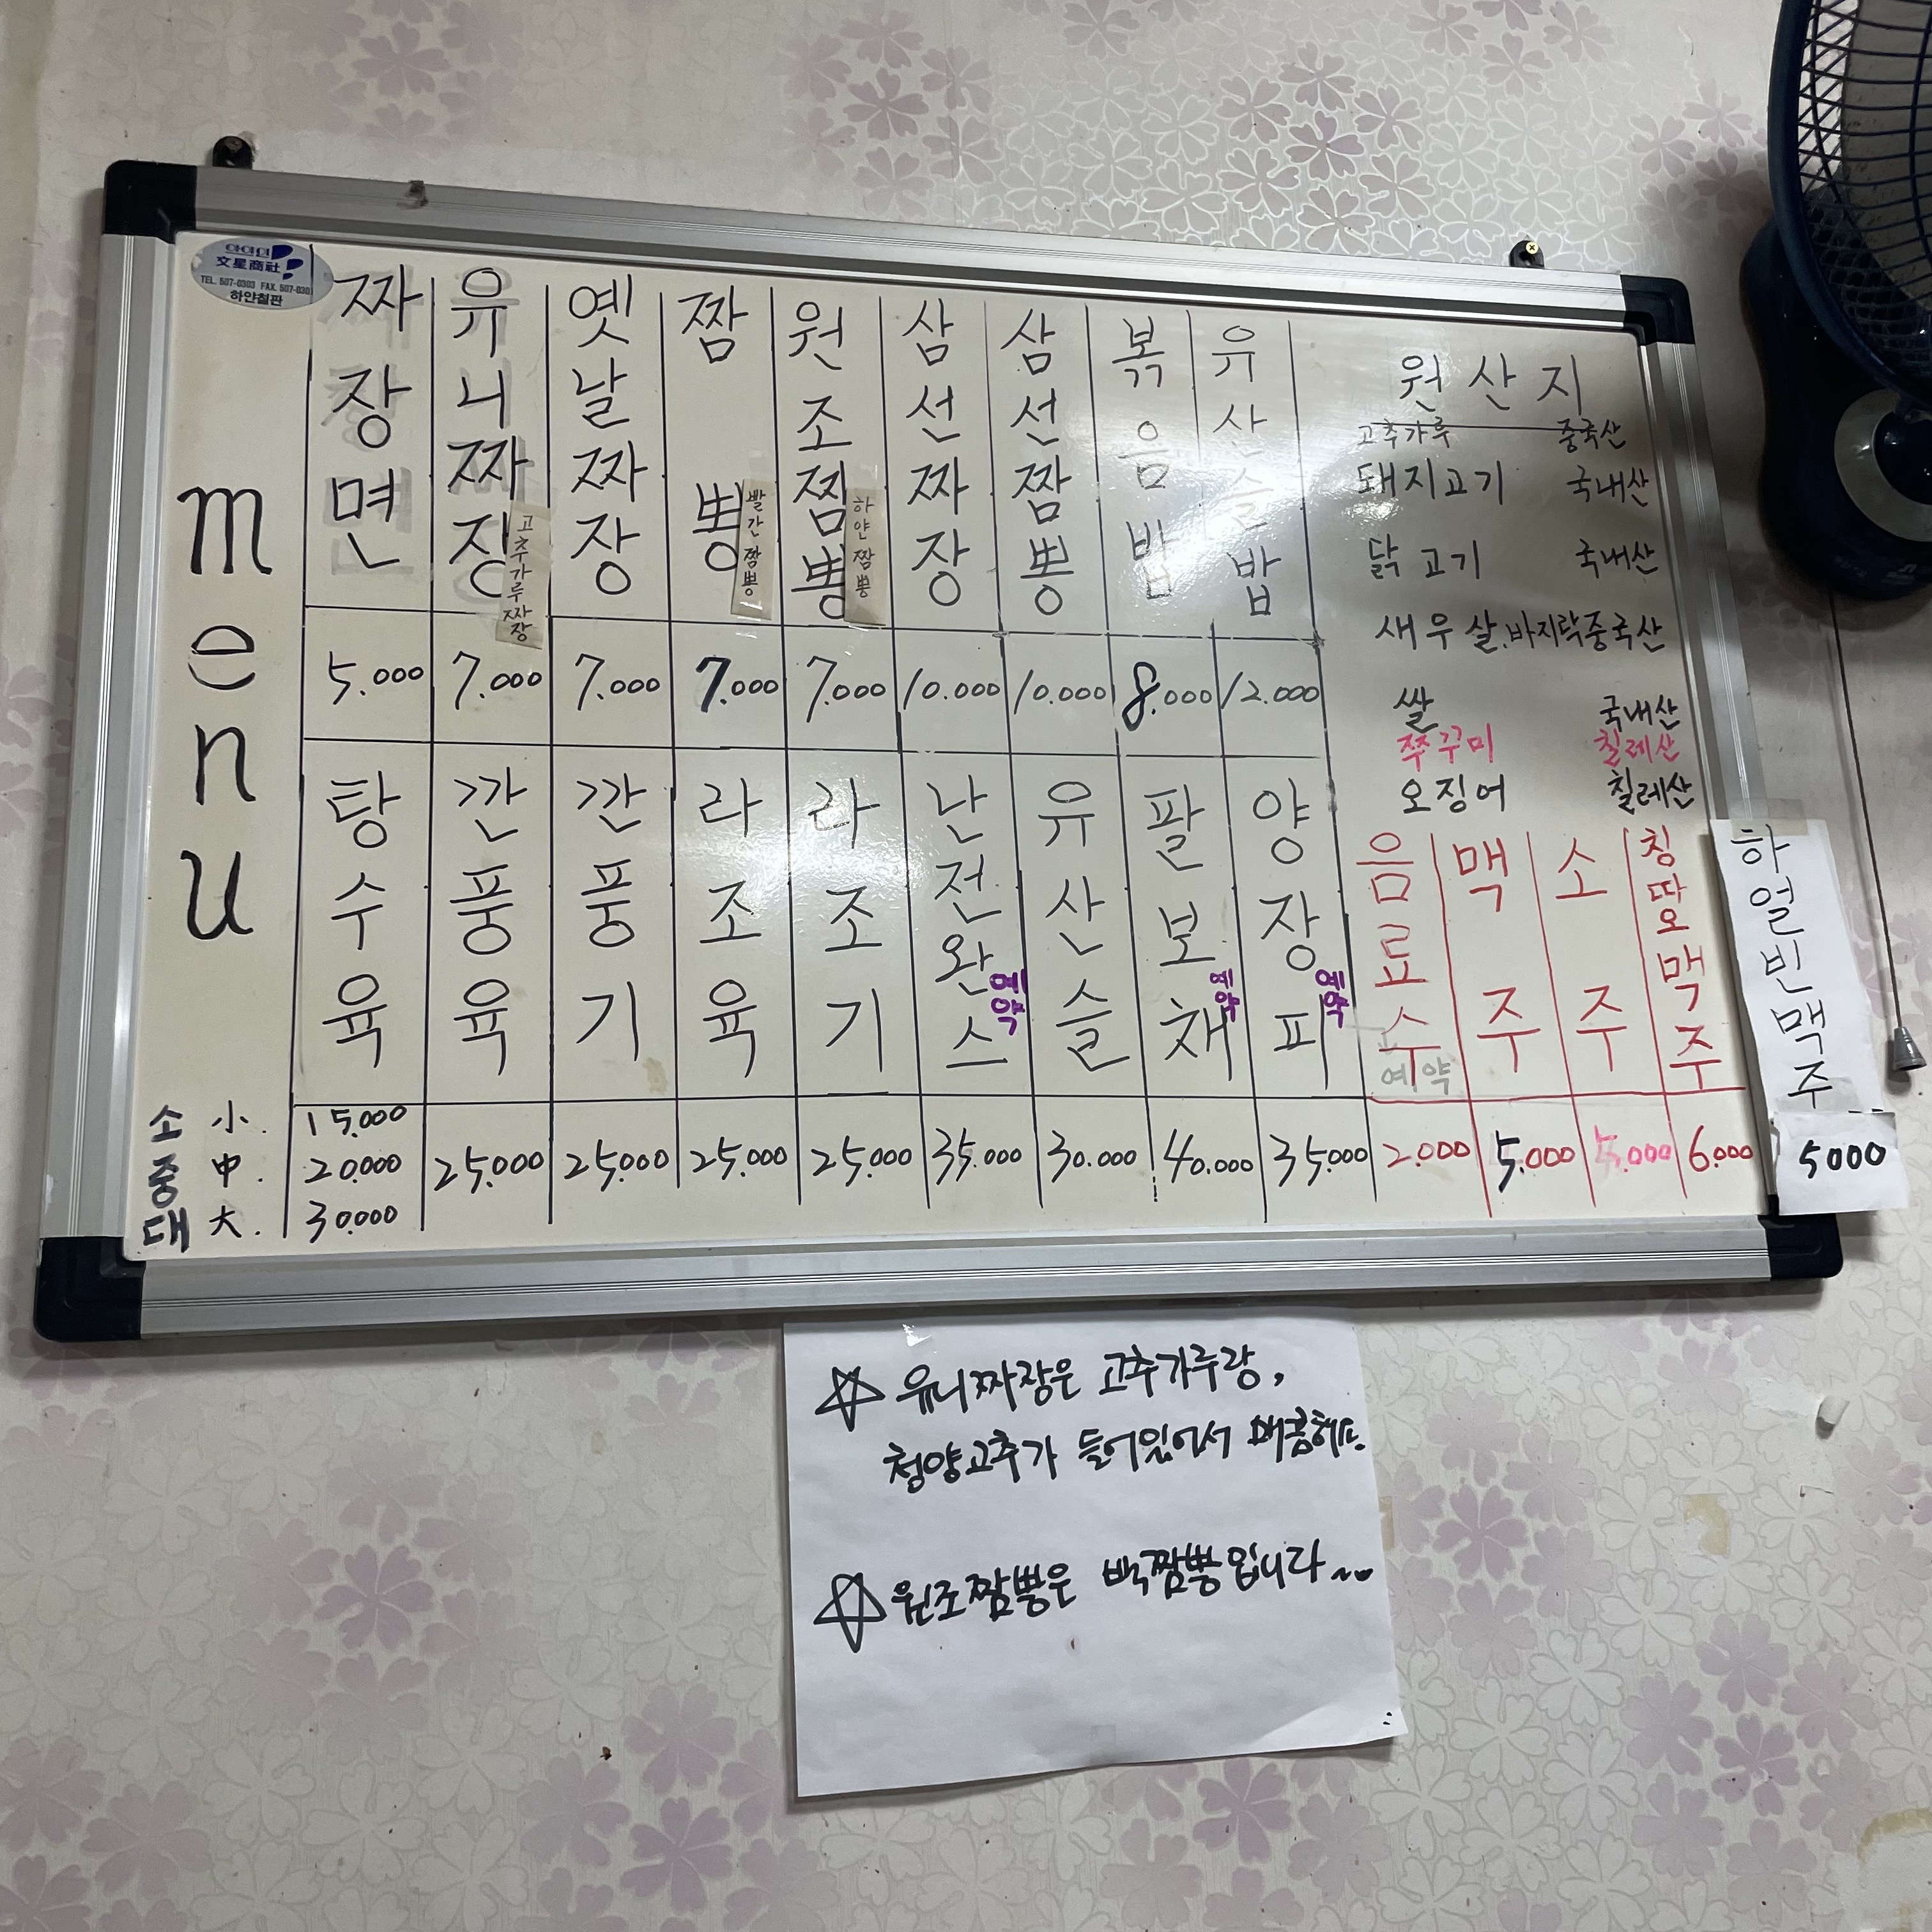 아하하
文星商社
TEL. 507-0303 FAX. 507-030
하얀칠판
menu
짜장면 5.000
유니짜장 고추가루짜장 7.000
옛날짜장 7.000
짬뽕 빨간짬뽕 7.000
원조짬뽕 하얀짬뽕 7.000
삼선짜장 10.000
삼선짬뽕 10.000
볶음밥 8.000
유산슬밥 12.000
원산지
고추가루 중국산
돼지고기 국내산
닭고기 국내산
새우살.바지락 중국산
쌀 국내산
쭈꾸미 칠레산
오징어 칠레산
탕수육
소 小. 15.000
중 中. 20.000
대 大. 30.000
깐풍육 25.000
깐풍기 25.000
라조육 25.000
라조기 25.000
난전완스 예약 35.000
유산슬 30.000
팔보채 예약 40.000
양장피 예약 35.000
음료수 예약 2.000
맥주 5.000
소주 5.000
칭따오맥주 6.000
하얼빈맥주 5000
☆ 유니짜장은 고추가루랑,
청양고추가 들어있어서 매콤해요.
☆ 원조짬뽕은 백짬뽕입니다~~